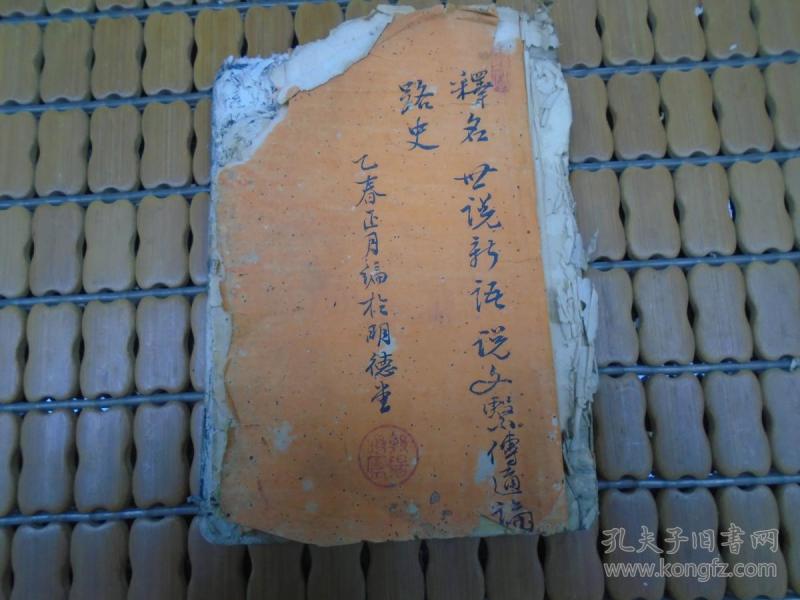 釋名 世説新語 説文繫傳通論
路史
乙春正月编於明德堂
孔夫子旧书网
www.kongfz.com